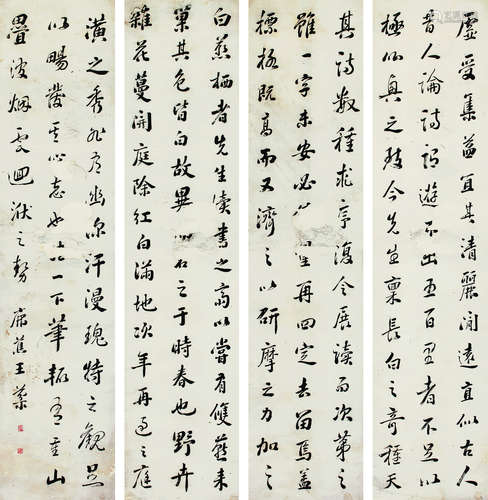 虛受集益宜其清麗閒遠直似古人
昔人論詩謂遊不出五百里者不足以
極山奧之致今先生稟長白之奇種天
其詩數種求序復令展讀而次第之
雖一字未安必再四定去留焉蓋
標格既高而又濟之以研摩之力加之
白燕栖者先生讀書之高以嘗有雙燕来
巢其色皆白故異以名之于時春也野卉
雜花蔓開庭除紅白滿地次年再過之庭
潢之秀非有幽深汗漫瑰特之觀足
以暢發其心志也一下筆輒有重山
疊波烟雲洄洑之勢 席蕉王